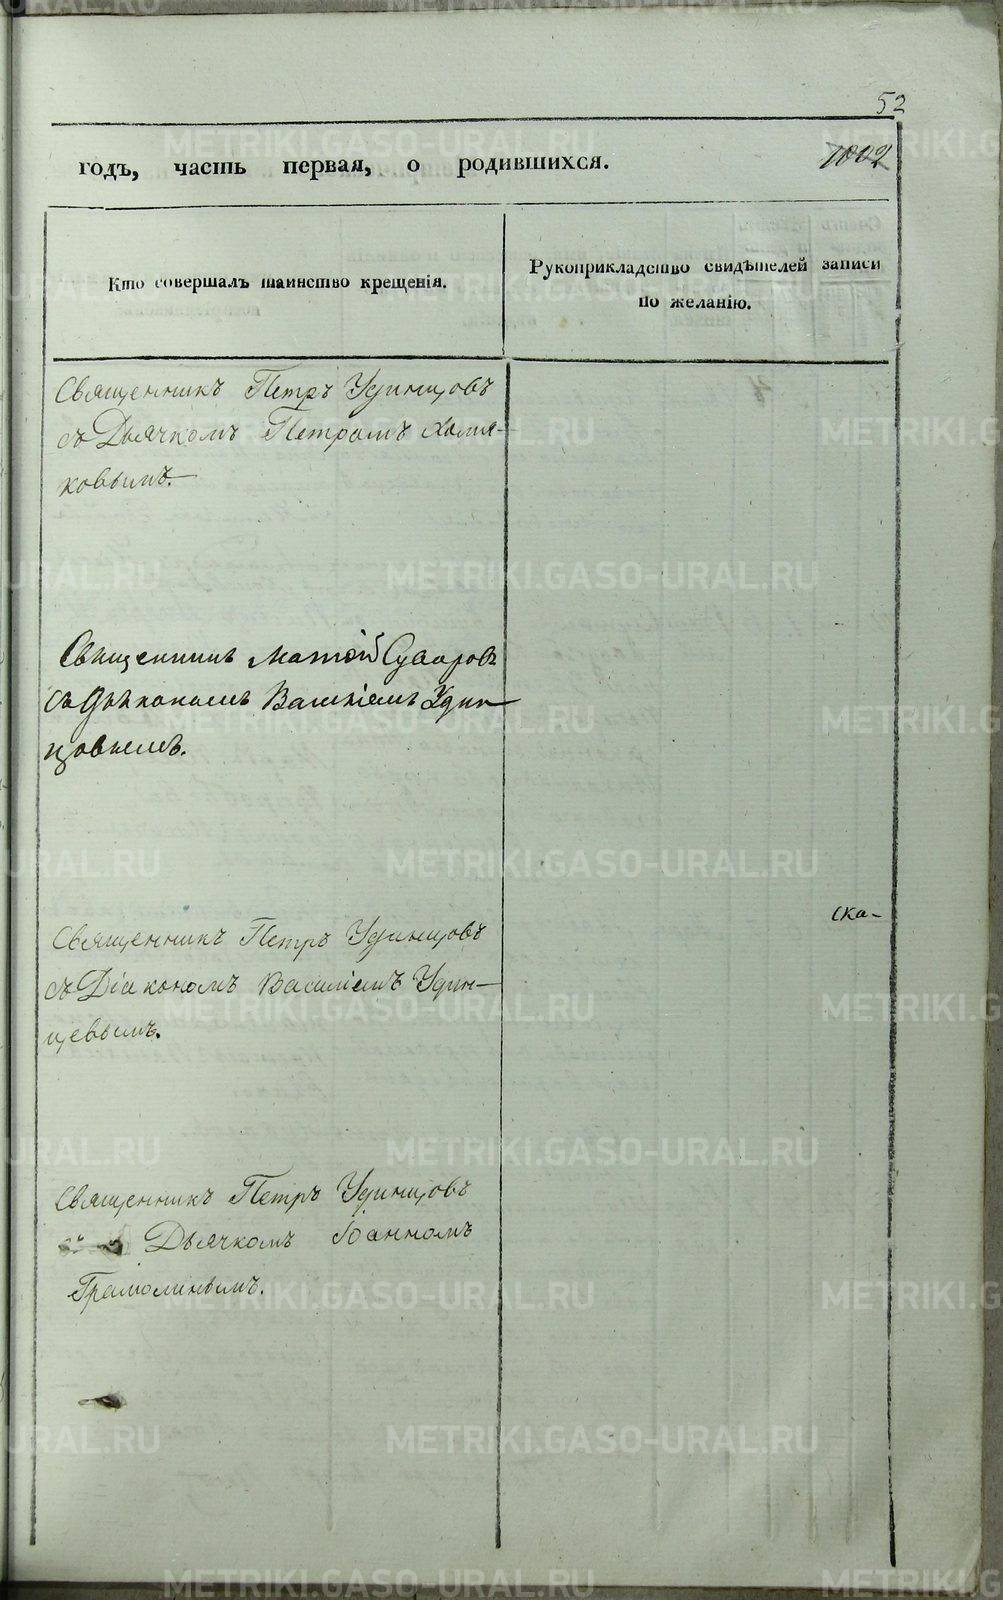 52
годъ, часть первая, о родившихся.
1002
Кто совершалъ таинство крещенія.
Рукоприкладство свидѣтелей записи
по желанію.
Священникъ Петръ Удинцовъ
съ Дьячкомъ Петромъ Хомя-
ковымъ.
Священникъ Матѳій Суворовъ
съ Діакономъ Василіемъ Удин-
цовымъ.
ска-
Священникъ Петръ Удинцовъ
съ Діакономъ Василіемъ Удин-
цевымъ.
Священникъ Петръ Удинцовъ
съ Дьячкомъ Іоанномъ
Грамолинымъ.
METRIKI.GASO-URAL.RU